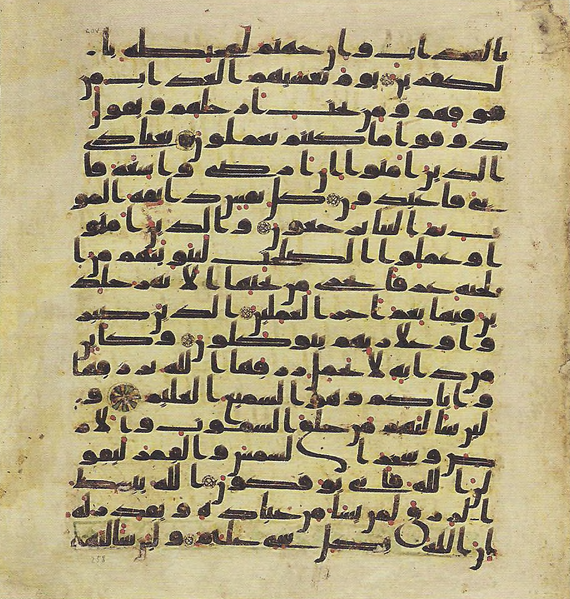 بالعذاب وان جهنم لمحيطه با
لكفرين يوم يغشيهم العذاب من
فوقهم ومن تحت ارجلهم ويقول
ذوقوا ما كنتم تعملون يعبادى
الذين امنوا ان ارضى وسعه فا
يى فاعبدون كل نفس ذايقه المو
ت ثم الينا ترجعون والذين امنو
ا وعملوا الصلحت لنبوينهم من ا
لجنه غرفا تجرى من تحتها الانهر خلد
ين فيها نعم اجر العملين الذين صبر
وا وعلى ربهم يتوكلون وكاين
من دابه لا تحمل رزقها الله يرزقها
واياكم وهو السميع العليم و
لين سالتهم من خلق السموت والار
ض وسخر الشمس والقمر ليقو
لن الله فانى يوفكون الله يبسط
الرزق لمن يشا من عباده ويقدر له
ان الله بكل شى عليم ولين سالتهم